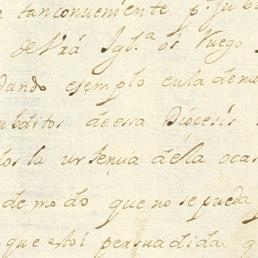 tan conveniente, p.r su b
de Vrâ Igl.a os ruego
dando exemplo en la demo
subditos de essa Diocesis
dos la urgencia de la ocas
de modo que no se pueda
que estoi persuadida q